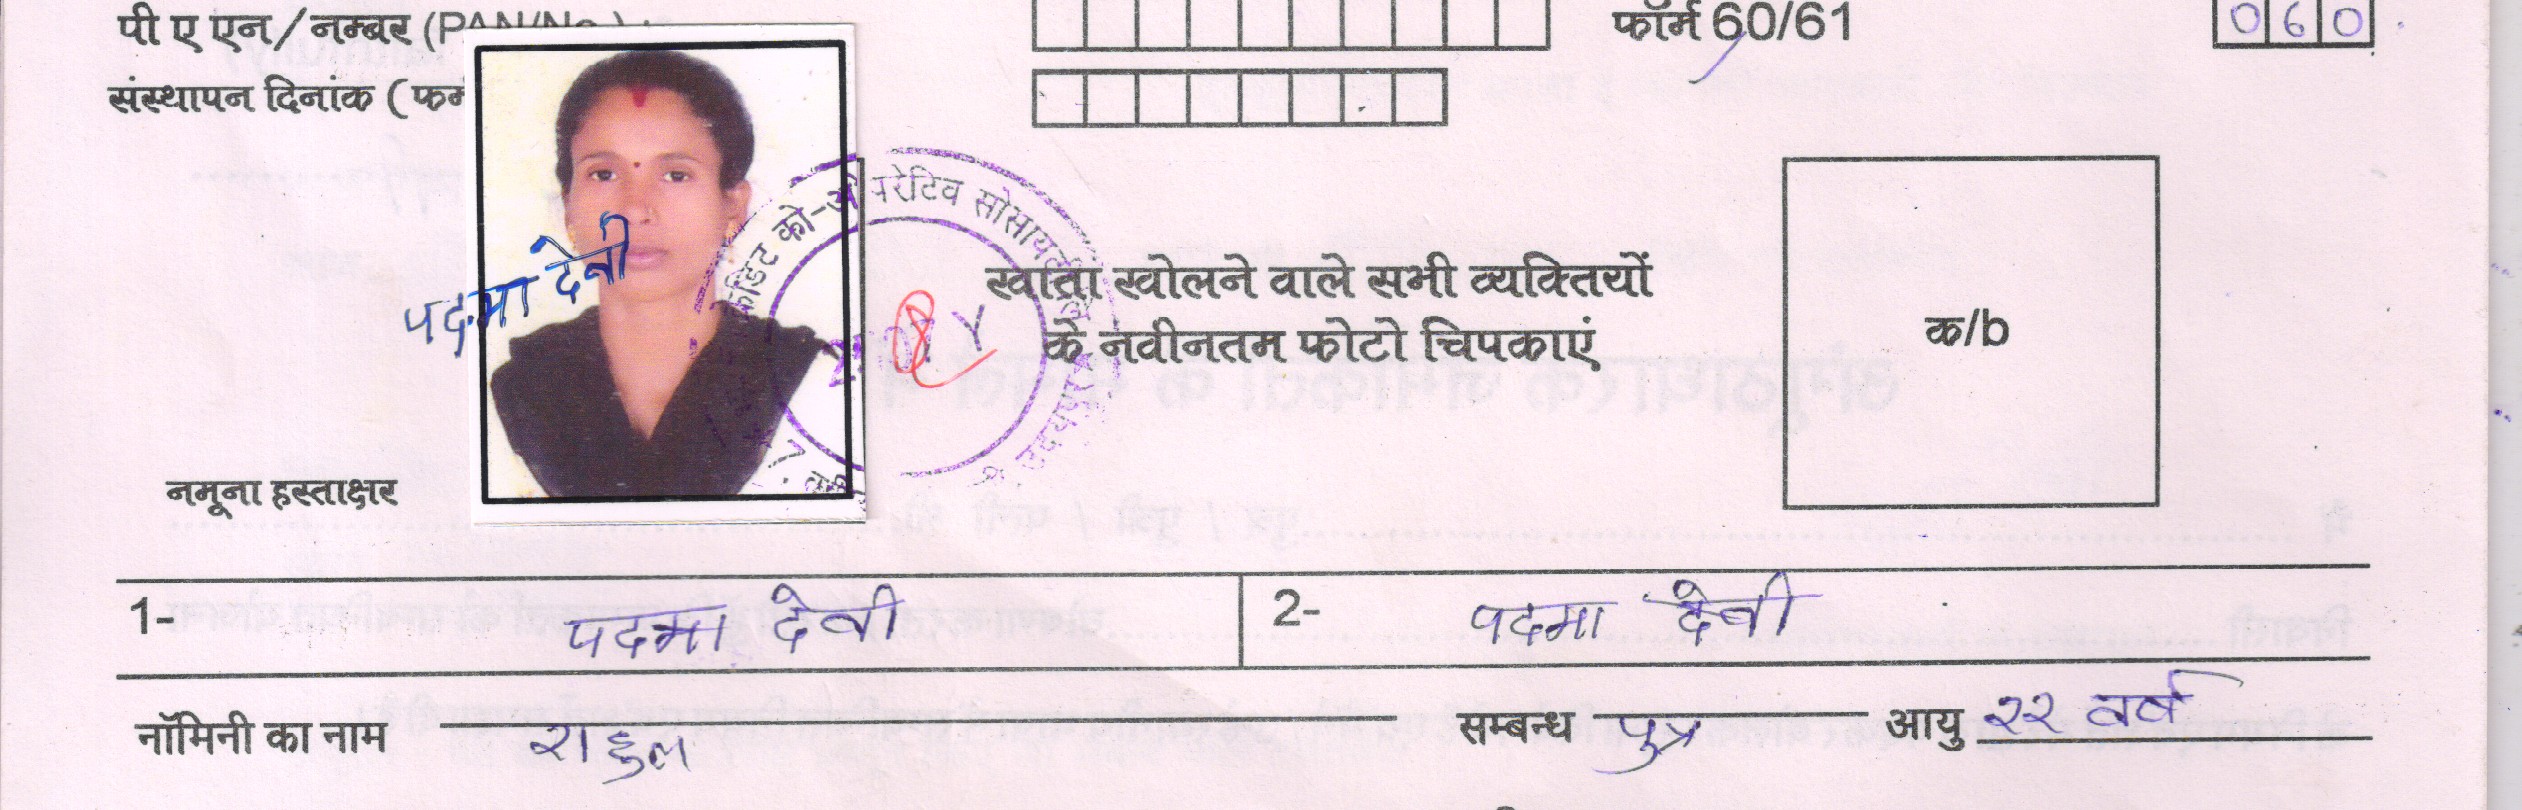 पी ए एन/ नम्बर (PAN/No.)
फॉर्म 60/61
060
संस्थापन दिनांक ( फर्म
क्रेडिट को-ऑपरेटिव सोसायटी लि
उदयपुर
पदमा देवी
खाता खोलने वाले सभी व्यक्तियों
के नवीनतम फोटो चिपकाएं
क/b
नमूना हस्ताक्षर
1- पदमा देवी
2- पदमा देवी
नॉमिनी का नाम राहुल सम्बन्ध पुत्र आयु २२ वर्ष